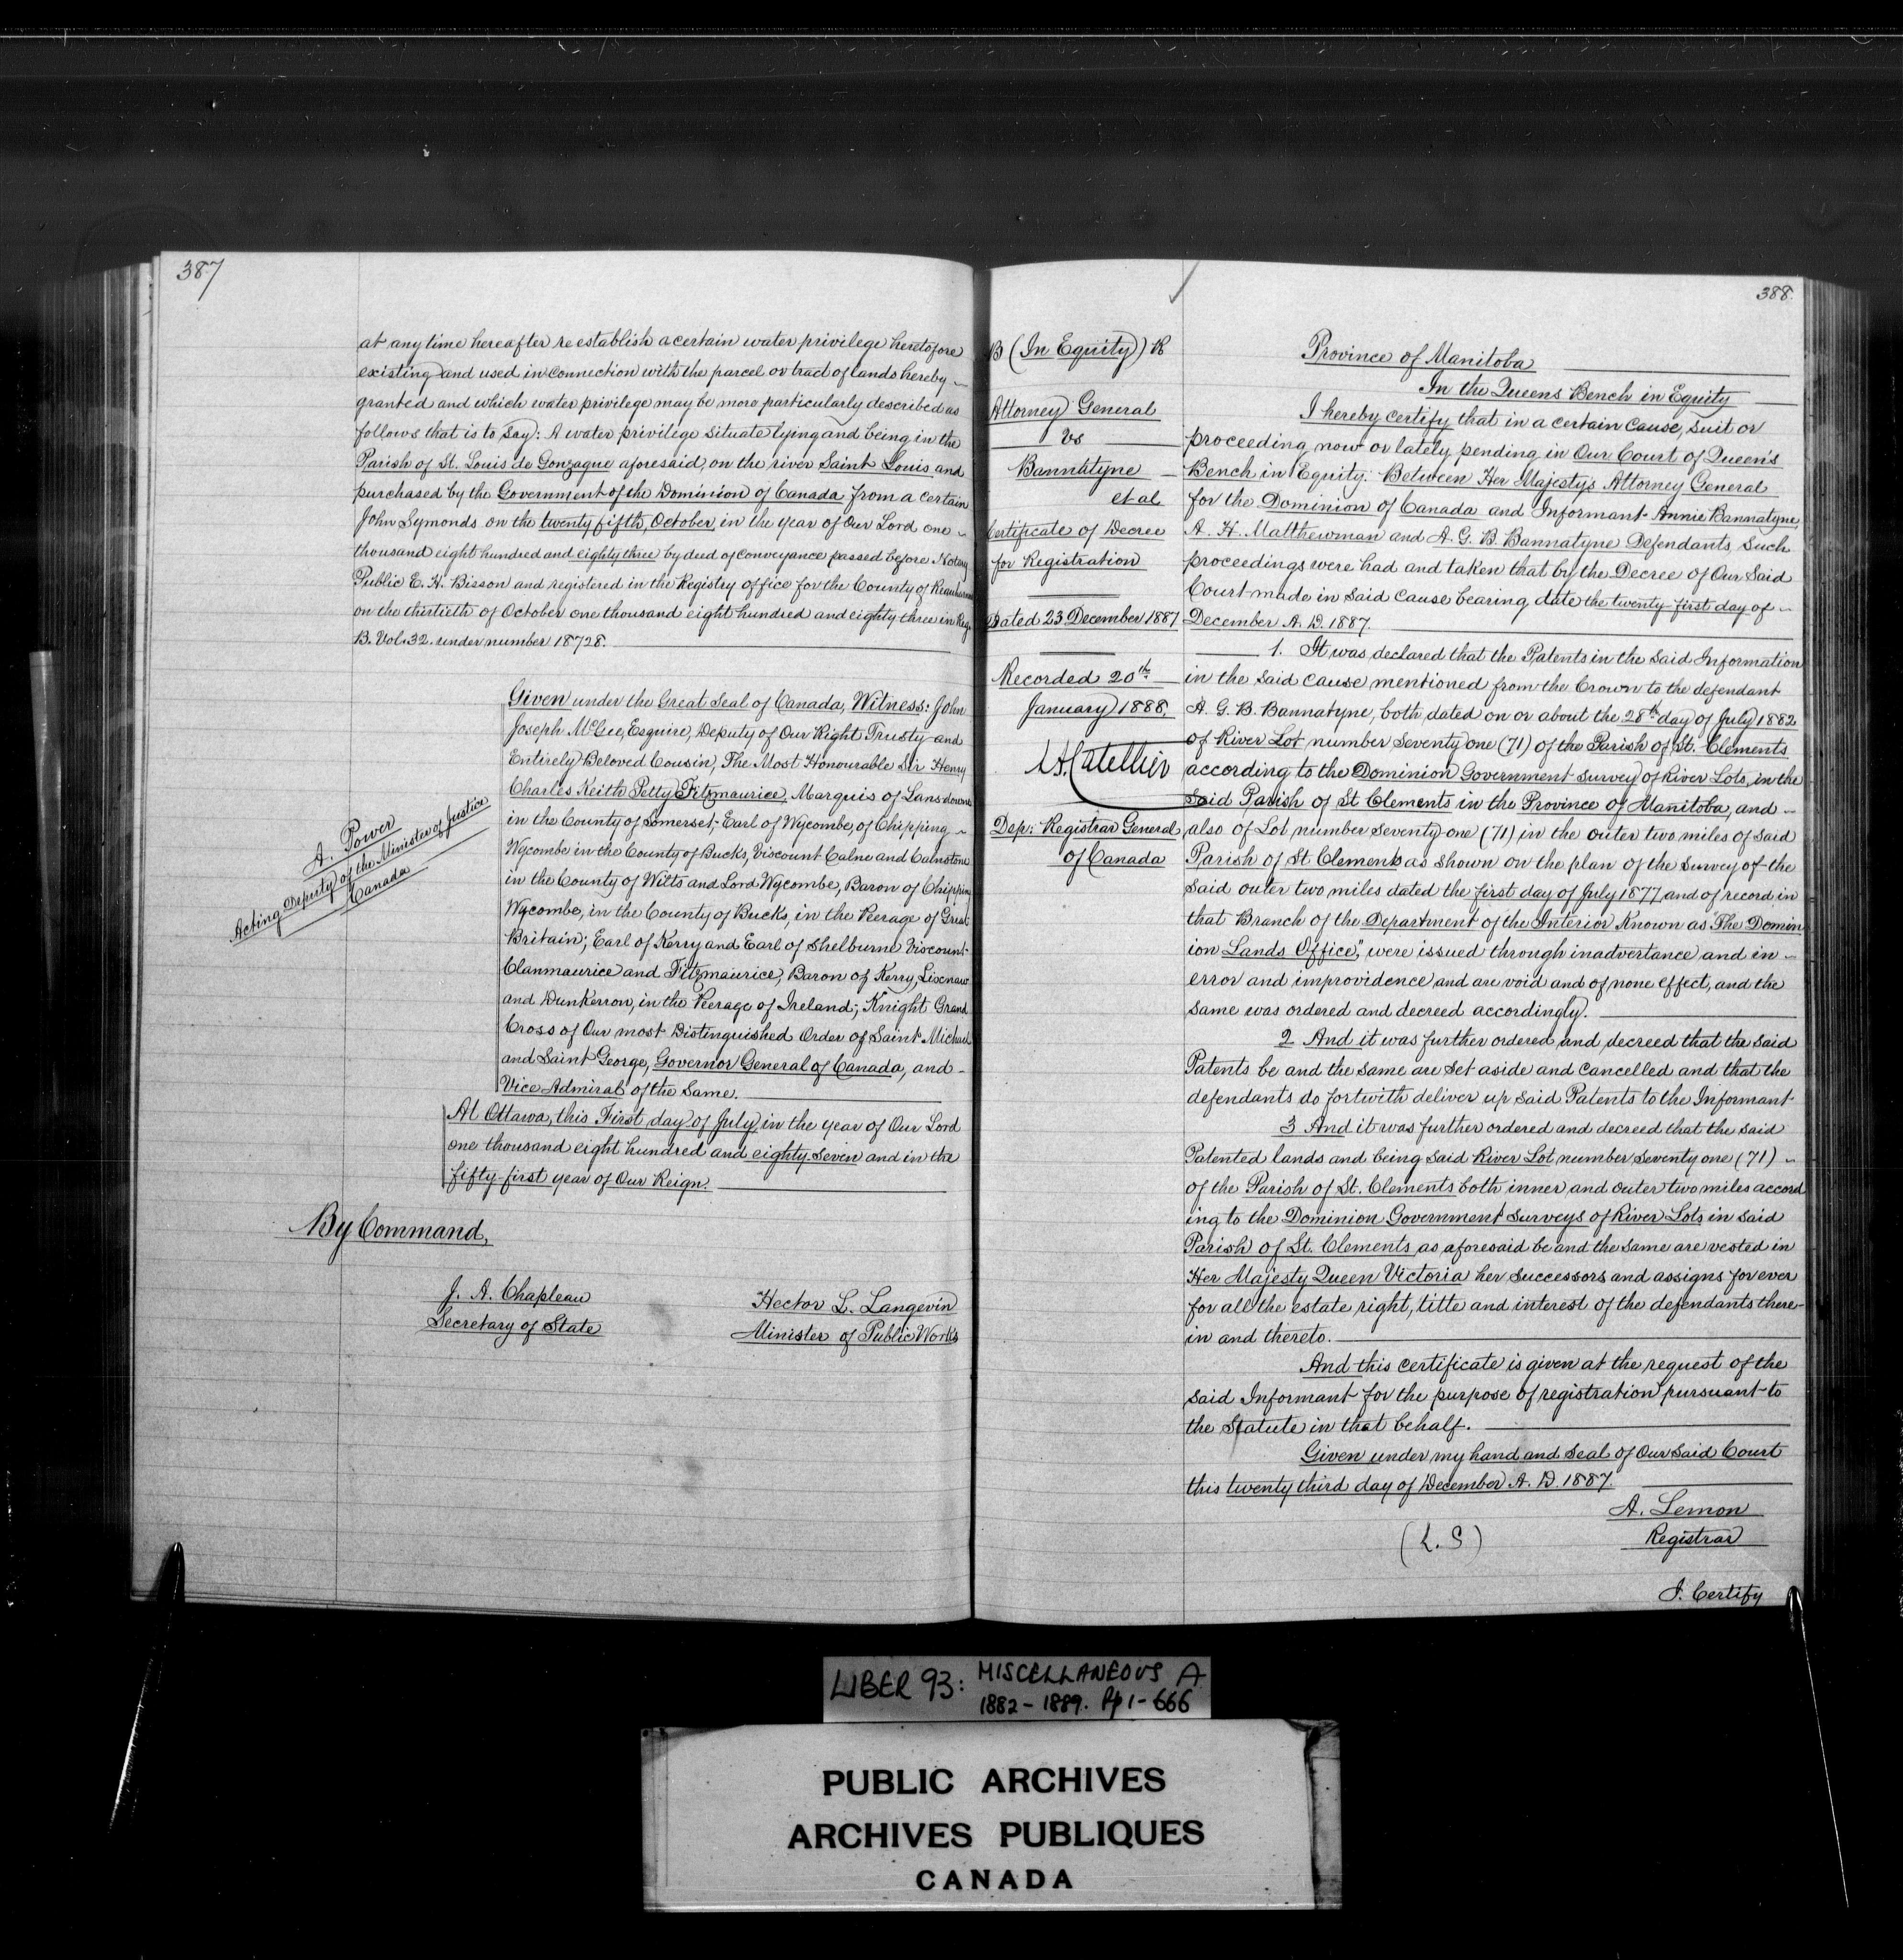 387
at any time hereafter re establish a certain water privilege heretofore
existing and used in connection with the parcel or tract of lands hereby
granted and which water privilege may be more particularly described as
follows that is to say: A water privilege situate lying and being in the
Parish of St. Louis de Gonzague aforesaid, on the river Saint Louis and
purchased by the Government of the Dominion of Canada from a certain
John Symonds on the twenty fifth, October, in the year of Our Lord one
thousand eight hundred and eighty three by deed of conveyance passed before Notary
Public E. H. Bisson and registered in the Registry office for the County of Beauharnois
on the thirtieth of October one thousand eight hundred and eighty three in Reg.
B. Vol. 32. under number 18728.
Given under the Great Seal of Canada, Witness: John
Joseph McGee, Esquire, Deputy of Our Right Trusty and
Entirely Beloved Cousin, The Most Honourable Sir Henry
Charles Keith Petty Fitzmaurice, Marquis of Lansdowne
in the County of Somerset, Earl of Wycombe, of Chipping
Wycombe in the County of Bucks, Viscount Calne and Calnstone
in the County of Wilts and Lord Wycombe, Baron of Chipping
Wycombe, in the County of Bucks, in the Peerage of Great
Britain; Earl of Kerry and Earl of Shelburne Viscount
Clanmaurice and Fitzmaurice, Baron of Kerry, Lixnaw
and Dunkerron, in the Peerage of Ireland; Knight Grand
Cross of Our most Distinguished Order of Saint Michael
and Saint George, Governor General of Canada, and
Vice Admiral of the Same.
At Ottawa, this First day of July, in the year of Our Lord
one thousand eight hundred and eighty-seven and in the
fifty-first year of Our Reign.
A. Power
Acting Deputy of the Minister of Justice
Canada
By Command,
J. A. Chapleau
Secretary of State
Hector L. Langevin
Minister of Public Works
388.
B (In Equity) R
Attorney General
vs
Bannatyne
et al
Certificate of Decree
for Registration
Dated 23 December 1887
Recorded 20th
January 1888.
L.A. Catellier
Dep: Registrar General
of Canada
Province of Manitoba
In the Queens Bench in Equity
I hereby certify that in a certain cause, suit or
proceeding now or lately pending in Our Court of Queen's
Bench in Equity. Between Her Majesty's Attorney General
for the Dominion of Canada and Informant Annie Bannatyne
A. H. Matthewman and A. G. B. Bannatyne Defendants, Such
proceedings were had and taken that by the Decree of Our Said
Court made in said Cause bearing date the twenty-first day of
December A. D. 1887.
1. It was declared that the Patents in the said Information
in the said cause mentioned from the Crown to the defendant
A. G. B. Bannatyne, both dated on or about the 28th day of July 1882
of River Lot number seventy one (71) of the Parish of St. Clements
according to the Dominion Government Survey of River Lots, in the
Said Parish of St Clements in the Province of Manitoba, and
also of Lot number seventy one (71) in the outer two miles of said
Parish of St Clements as shown on the plan of the survey of the
said outer two miles dated the first day of July 1877 and of record in
that Branch of the Department of the Interior Known as "The Domin
ion Lands Office", were issued through inadvertance and in
error and improvidence and are void and of none effect, and the
same was ordered and decreed accordingly.
2 And it was further ordered and decreed that the said
Patents be and the same are set aside and cancelled and that the
defendants do fortwith deliver up said Patents to the Informant
3 And it was further ordered and decreed that the said
Patented lands and being said River Lot number seventy one (71)
of the Parish of St. Clements both inner and outer two miles accord
ing to the Dominion Government Surveys of River Lots in said
Parish of St. Clements as aforesaid be and the same are vested in
Her Majesty Queen Victoria her successors and assigns for ever
for all the estate right, title and interest of the defendants there-
in and thereto.
And this certificate is given at the request of the
said Informant for the purpose of registration pursuant to
the Statute in that behalf.
Given under my hand and seal of Our said Court
this twenty third day of December A. D. 1887.
A. Lemon
Registrar
(L. S)
I. Certify
LIBER 93: MISCELLANEOUS A
1882 - 1889. Pp 1 - 666
PUBLIC ARCHIVES
ARCHIVES PUBLIQUES
CANADA